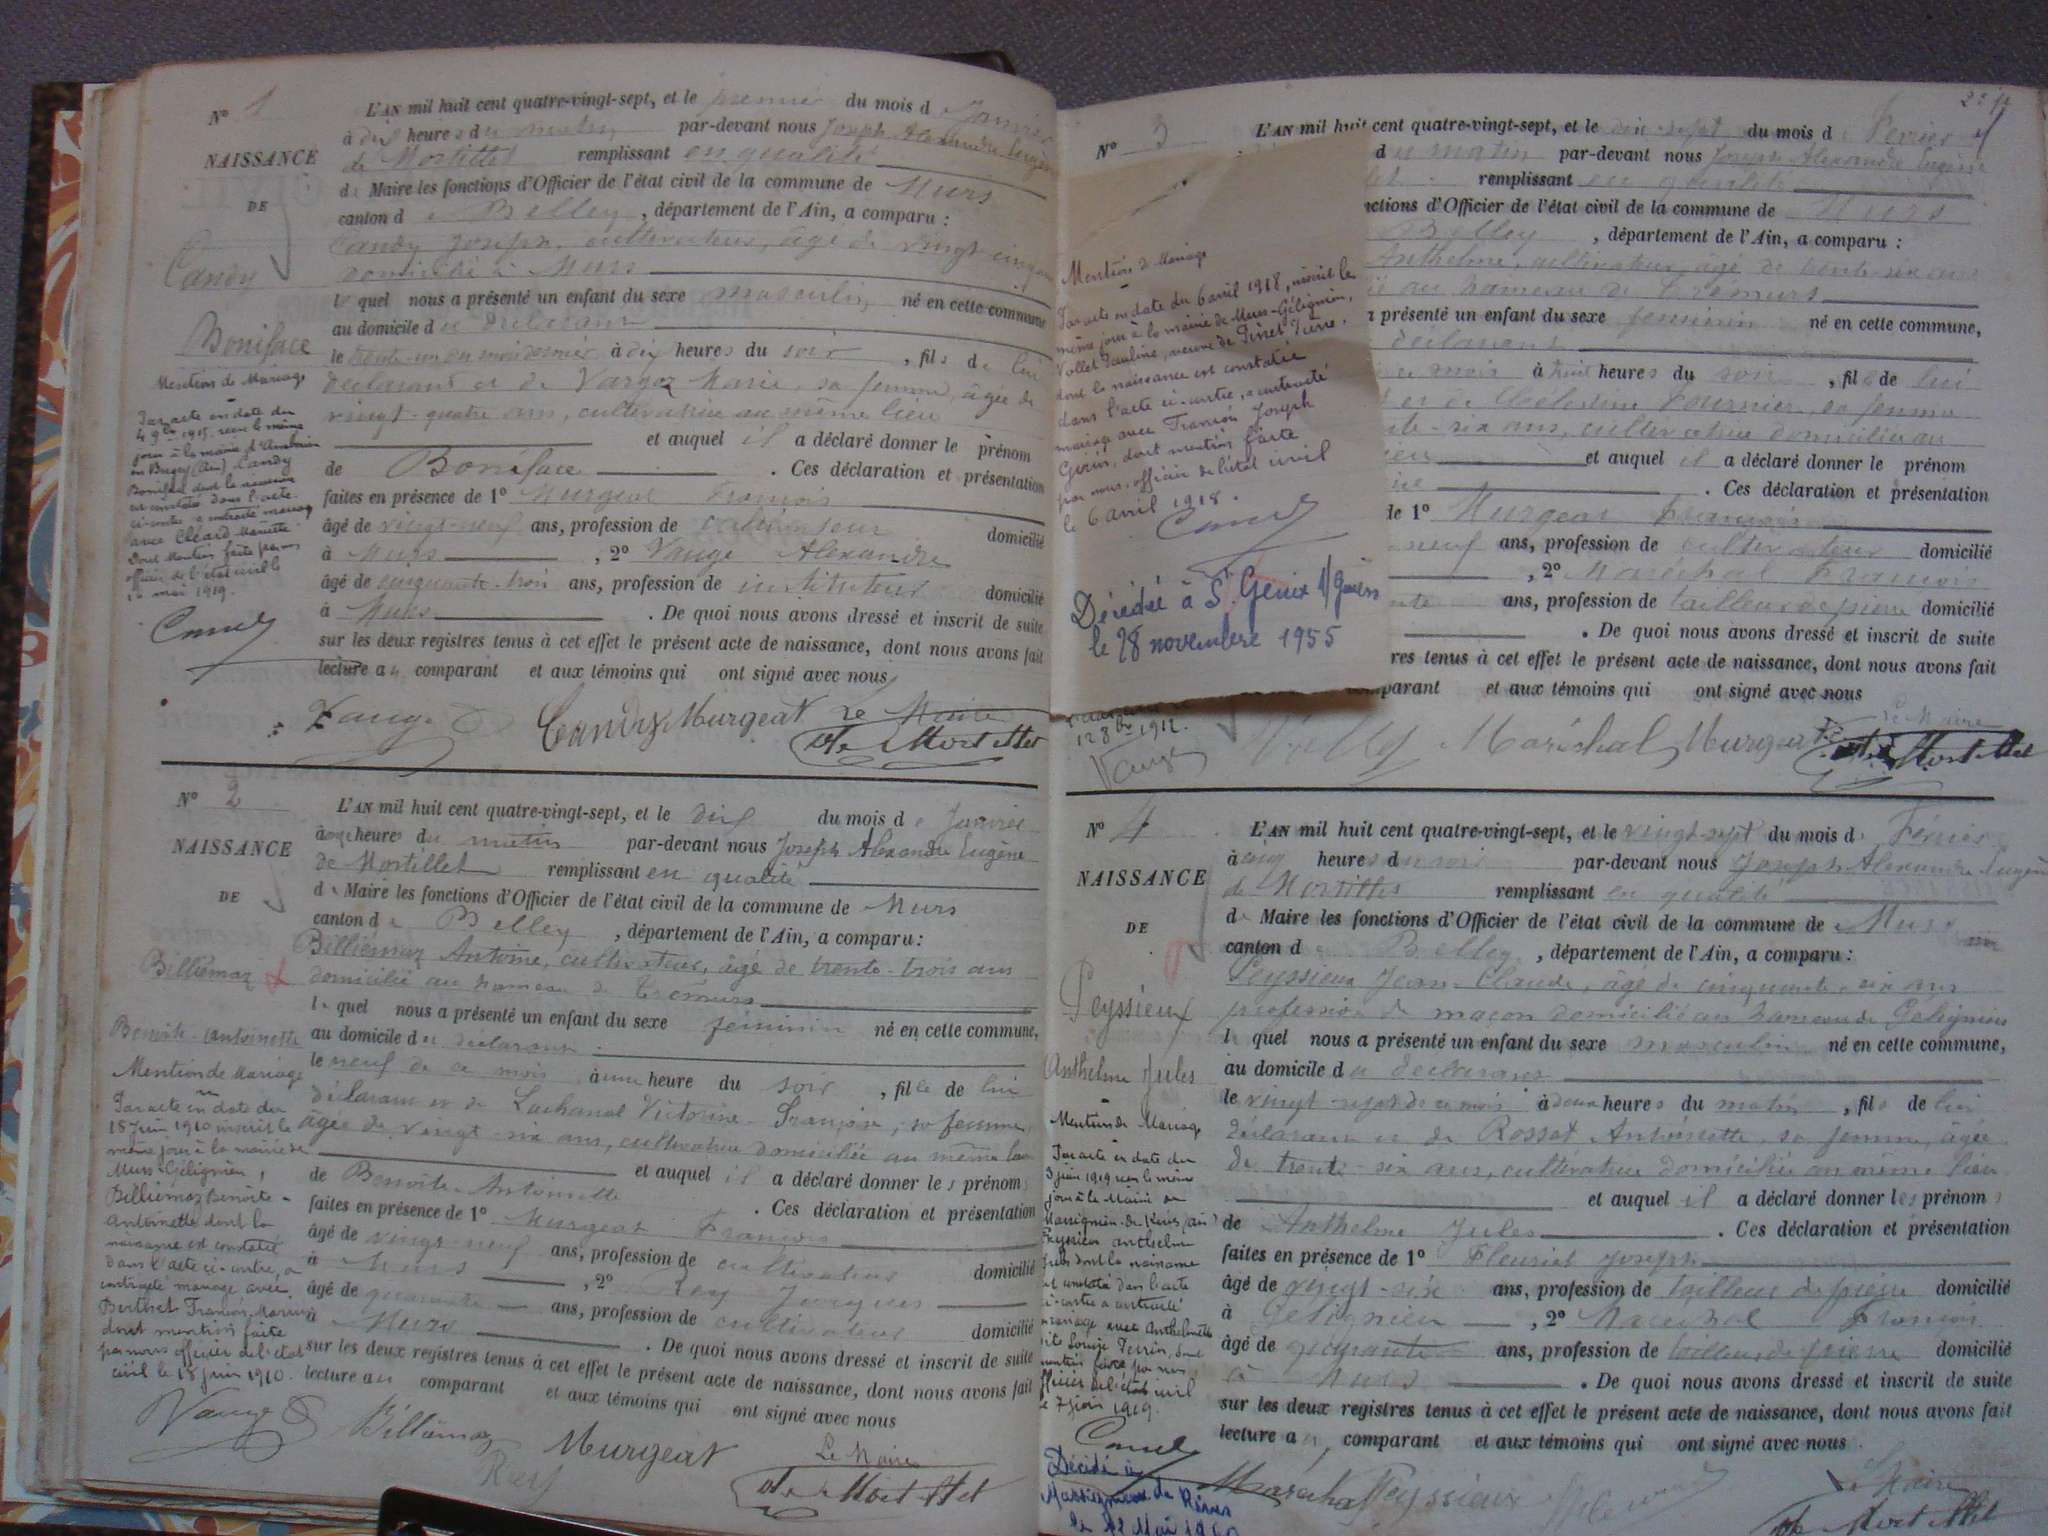 N° 1
NAISSANCE
DE
Candy
Boniface
Mention de Mariage
Par acte en date du
4 9bre 1915 reçu le même
jour à la mairie d'Ambérieu
en Bugey (Ain) Candy
Boniface dont la naissance
est constatée dans l'acte
ci-contre a contracté mariage
avec Cléard Mariette
Dont Mention faite par nous
officier de l'état civil le
mai 1919.
L'AN mil huit cent quatre-vingt-sept, et le premier du mois de Janvier
à dix heures du matin par-devant nous Joseph Alexandre Eugène
de Mortillet remplissant en qualité
de Maire les fonctions d'Officier de l'état civil de la commune de Murs
canton de Belley, département de l'Ain, a comparu :
Candy Joseph, cultivateur, âgé de vingt cinq ans
domicilié à Murs
lequel nous a présenté un enfant du sexe masculin né en cette commune
au domicile du déclarant
le trente-un du mois dernier à dix heures du soir, fils de lui
déclarant et de Vargoz Marie, sa femme, âgée de
vingt-quatre ans, cultivatrice au même lieu
et auquel il a déclaré donner le prénom
de Boniface. Ces déclaration et présentation
faites en présence de 1° Murgeat François
âgé de vingt-neuf ans, profession de cultivateur domicilié
à Murs, 2° Vauge Alexandre
âgé de cinquante-trois ans, profession de instituteur domicilié
à Murs. De quoi nous avons dressé et inscrit de suite
sur les deux registres tenus à cet effet le présent acte de naissance, dont nous avons fait
lecture au comparant et aux témoins qui ont signé avec nous
Vauge Candy Murgeat Le Maire
de Mortillet
N° 2
NAISSANCE
DE
Billiémaz
Benoîte-Antoinette
Mention de Mariage
Par acte en date du
18 Juin 1910 inscrit le
même jour à la mairie de
Murs-Gélignieux,
Billiémaz Benoîte-
Antoinette dont la
naissance est constatée
dans l'acte ci-contre, a
contracté mariage avec
Berthet François Marius
dont mention faite
par nous officier de l'état
civil le 18 juin 1910.
Vauge
L'AN mil huit cent quatre-vingt-sept, et le dix du mois de Janvier
à onze heures du matin par-devant nous Joseph Alexandre Eugène
de Mortillet remplissant en qualité
de Maire les fonctions d'Officier de l'état civil de la commune de Murs
canton de Belley, département de l'Ain, a comparu :
Billiémaz Antoine, cultivateur, âgé de trente-trois ans
domicilié au hameau de Crémurs
lequel nous a présenté un enfant du sexe féminin né en cette commune,
au domicile du déclarant
le neuf de ce mois, à une heure du soir, fille de lui
déclarant et de Lachanal Victorine-Françoise, sa femme,
âgée de vingt-six ans, cultivatrice domiciliée au même lieu
et auquel il a déclaré donner les prénoms
de Benoîte-Antoinette. Ces déclaration et présentation
faites en présence de 1° Murgeat François
âgé de vingt-neuf ans, profession de cultivateur domicilié
à Murs, 2° Rey Jacques
âgé de quarante ans, profession de cultivateur domicilié
à Murs. De quoi nous avons dressé et inscrit de suite
sur les deux registres tenus à cet effet le présent acte de naissance, dont nous avons fait
lecture au comparant et aux témoins qui ont signé avec nous
Billiémaz Murgeat Le Maire
Rey de Mortillet
N° 3
Mention de Mariage
Par acte en date du 6 avril 1918, inscrit le
même jour à la mairie de Murs-Gélignieux,
Vollet Pauline, veuve de Pinet Pierre,
dont la naissance est constatée
dans l'acte ci-contre, a contracté
mariage avec François Joseph
Guérin, dont mention faite
par nous, officier de l'état civil
le 6 avril 1918.
Décédée à St Genix s/ Guiers
le 28 novembre 1955
12 8bre 1912.
Vauge
L'AN mil huit cent quatre-vingt-sept, et le dix-sept du mois de Février
du matin par-devant nous Joseph Alexandre Eugène
remplissant en qualité
nctions d'Officier de l'état civil de la commune de Murs
Belley, département de l'Ain, a comparu :
Anthelme, cultivateur, âgé de trente six ans
au hameau de Crémurs
présenté un enfant du sexe féminin né en cette commune,
déclarant
ce mois à huit heures du soir, fille de lui
et de Célestine Fournier, sa femme
-six ans, cultivatrice domiciliée au
lieu et auquel il a déclaré donner le prénom
. Ces déclaration et présentation
de 1° Murgeat François
neuf ans, profession de cultivateur domicilié
, 2° Maréchal François
ans, profession de tailleur de pierre domicilié
. De quoi nous avons dressé et inscrit de suite
res tenus à cet effet le présent acte de naissance, dont nous avons fait
comparant et aux témoins qui ont signé avec nous
Maréchal Murgeat Le Maire
de Mortillet
N° 4
NAISSANCE
DE
Peyssieux
Anthelme Jules
Mention de Mariage
Par acte en date du
juin 1919 reçu le même
jour à la Mairie de
Massignieu-de-Rives (Ain)
Peyssieux Anthelme
Jules dont la naissance
est constatée dans l'acte
ci-contre a contracté
mariage avec Anthelmette
Louise Perrin, dont
mention faite par nous,
officier de l'état civil
le 7 juin 1919.
Décédé à
Massignieu de Rives
le 12 Mai
L'AN mil huit cent quatre-vingt-sept, et le vingt-sept du mois de Février
à cinq heures du soir par-devant nous Joseph Alexandre Eugène
de Mortillet remplissant en qualité
de Maire les fonctions d'Officier de l'état civil de la commune de Murs
canton de Belley, département de l'Ain, a comparu :
Peyssieux Jean-Claude, âgé de cinquante-six ans
profession de maçon domicilié au hameau de Gélignieux
lequel nous a présenté un enfant du sexe masculin né en cette commune,
au domicile du déclarant
le vingt-sept de ce mois à deux heures du matin, fils de lui
déclarant et de Rosset Antoinette, sa femme, âgée
de trente-six ans, cultivatrice domiciliée au même lieu
et auquel il a déclaré donner les prénoms
de Anthelme Jules. Ces déclaration et présentation
faites en présence de 1° Fleuriet Joseph
âgé de vingt-six ans, profession de tailleur de pierre domicilié
à Gélignieu, 2° Maréchal François
âgé de quarante ans, profession de tailleur de pierre domicilié
à Murs. De quoi nous avons dressé et inscrit de suite
sur les deux registres tenus à cet effet le présent acte de naissance, dont nous avons fait
lecture au comparant et aux témoins qui ont signé avec nous.
Maréchal Peyssieux Le Maire
de Mortillet